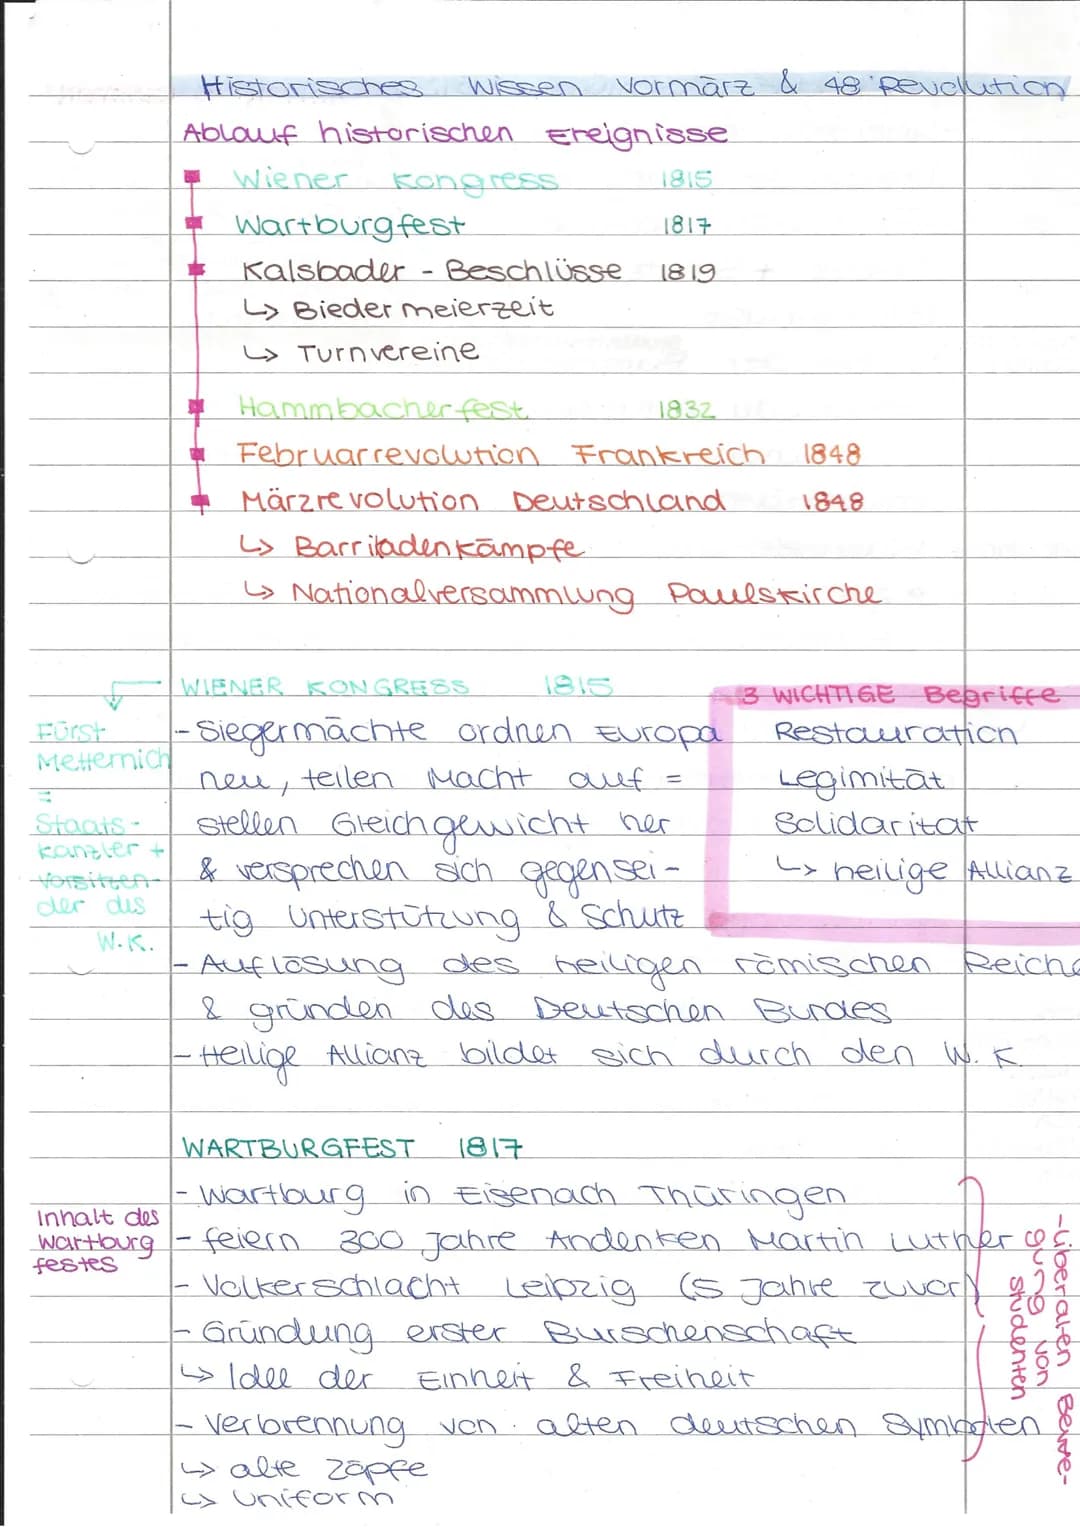 Historisches Wissen Vormärz & 48'Revolution
Ablauf historischen Ereignisse
Wiener Kongress 1815
Wartburgfest 1817
Kalsbader - Beschlüsse 1819
↳ Biedermeierzeit
↳ Turnvereine
Hammbacherfest 1832
Februarrevolution Frankreich 1848
Märzrevolution Deutschland 1848
↳ Barrikadenkämpfe
↳ Nationalversammlung Paulskirche
WIENER KONGRESS 1815
- Siegermächte ordnen Europa
neu, teilen Macht auf =
stellen Gleichgewicht her
& versprechen sich gegensei-
tig Unterstützung & Schutz
- Auflösung des heiligen römischen Reiche
& gründen des Deutschen Bundes
- Heilige Allianz bildet sich durch den W.K.
Fürst
Metternich
=
Staats-
kanzler +
Vorsitzen-
der des
W.K.
3 WICHTIGE Begriffe
Restauration
Legimität
Solidarität
↳ heilige Allianz
WARTBURGFEST 1817
- Wartburg in Eisenach Thüringen
- feiern 300 Jahre Andenken Martin Luther
- Volkerschlacht Leipzig (5 Jahre zuvor)
- Gründung erster Burschenschaft
↳ Idee der Einheit & Freiheit
- Verbrennung von alten deutschen Symbolen
↳ alte Zöpfe
↳ Uniform
Inhalt des
Wartburg
festes
- Liberalen Bewe-
gung von
Studenten